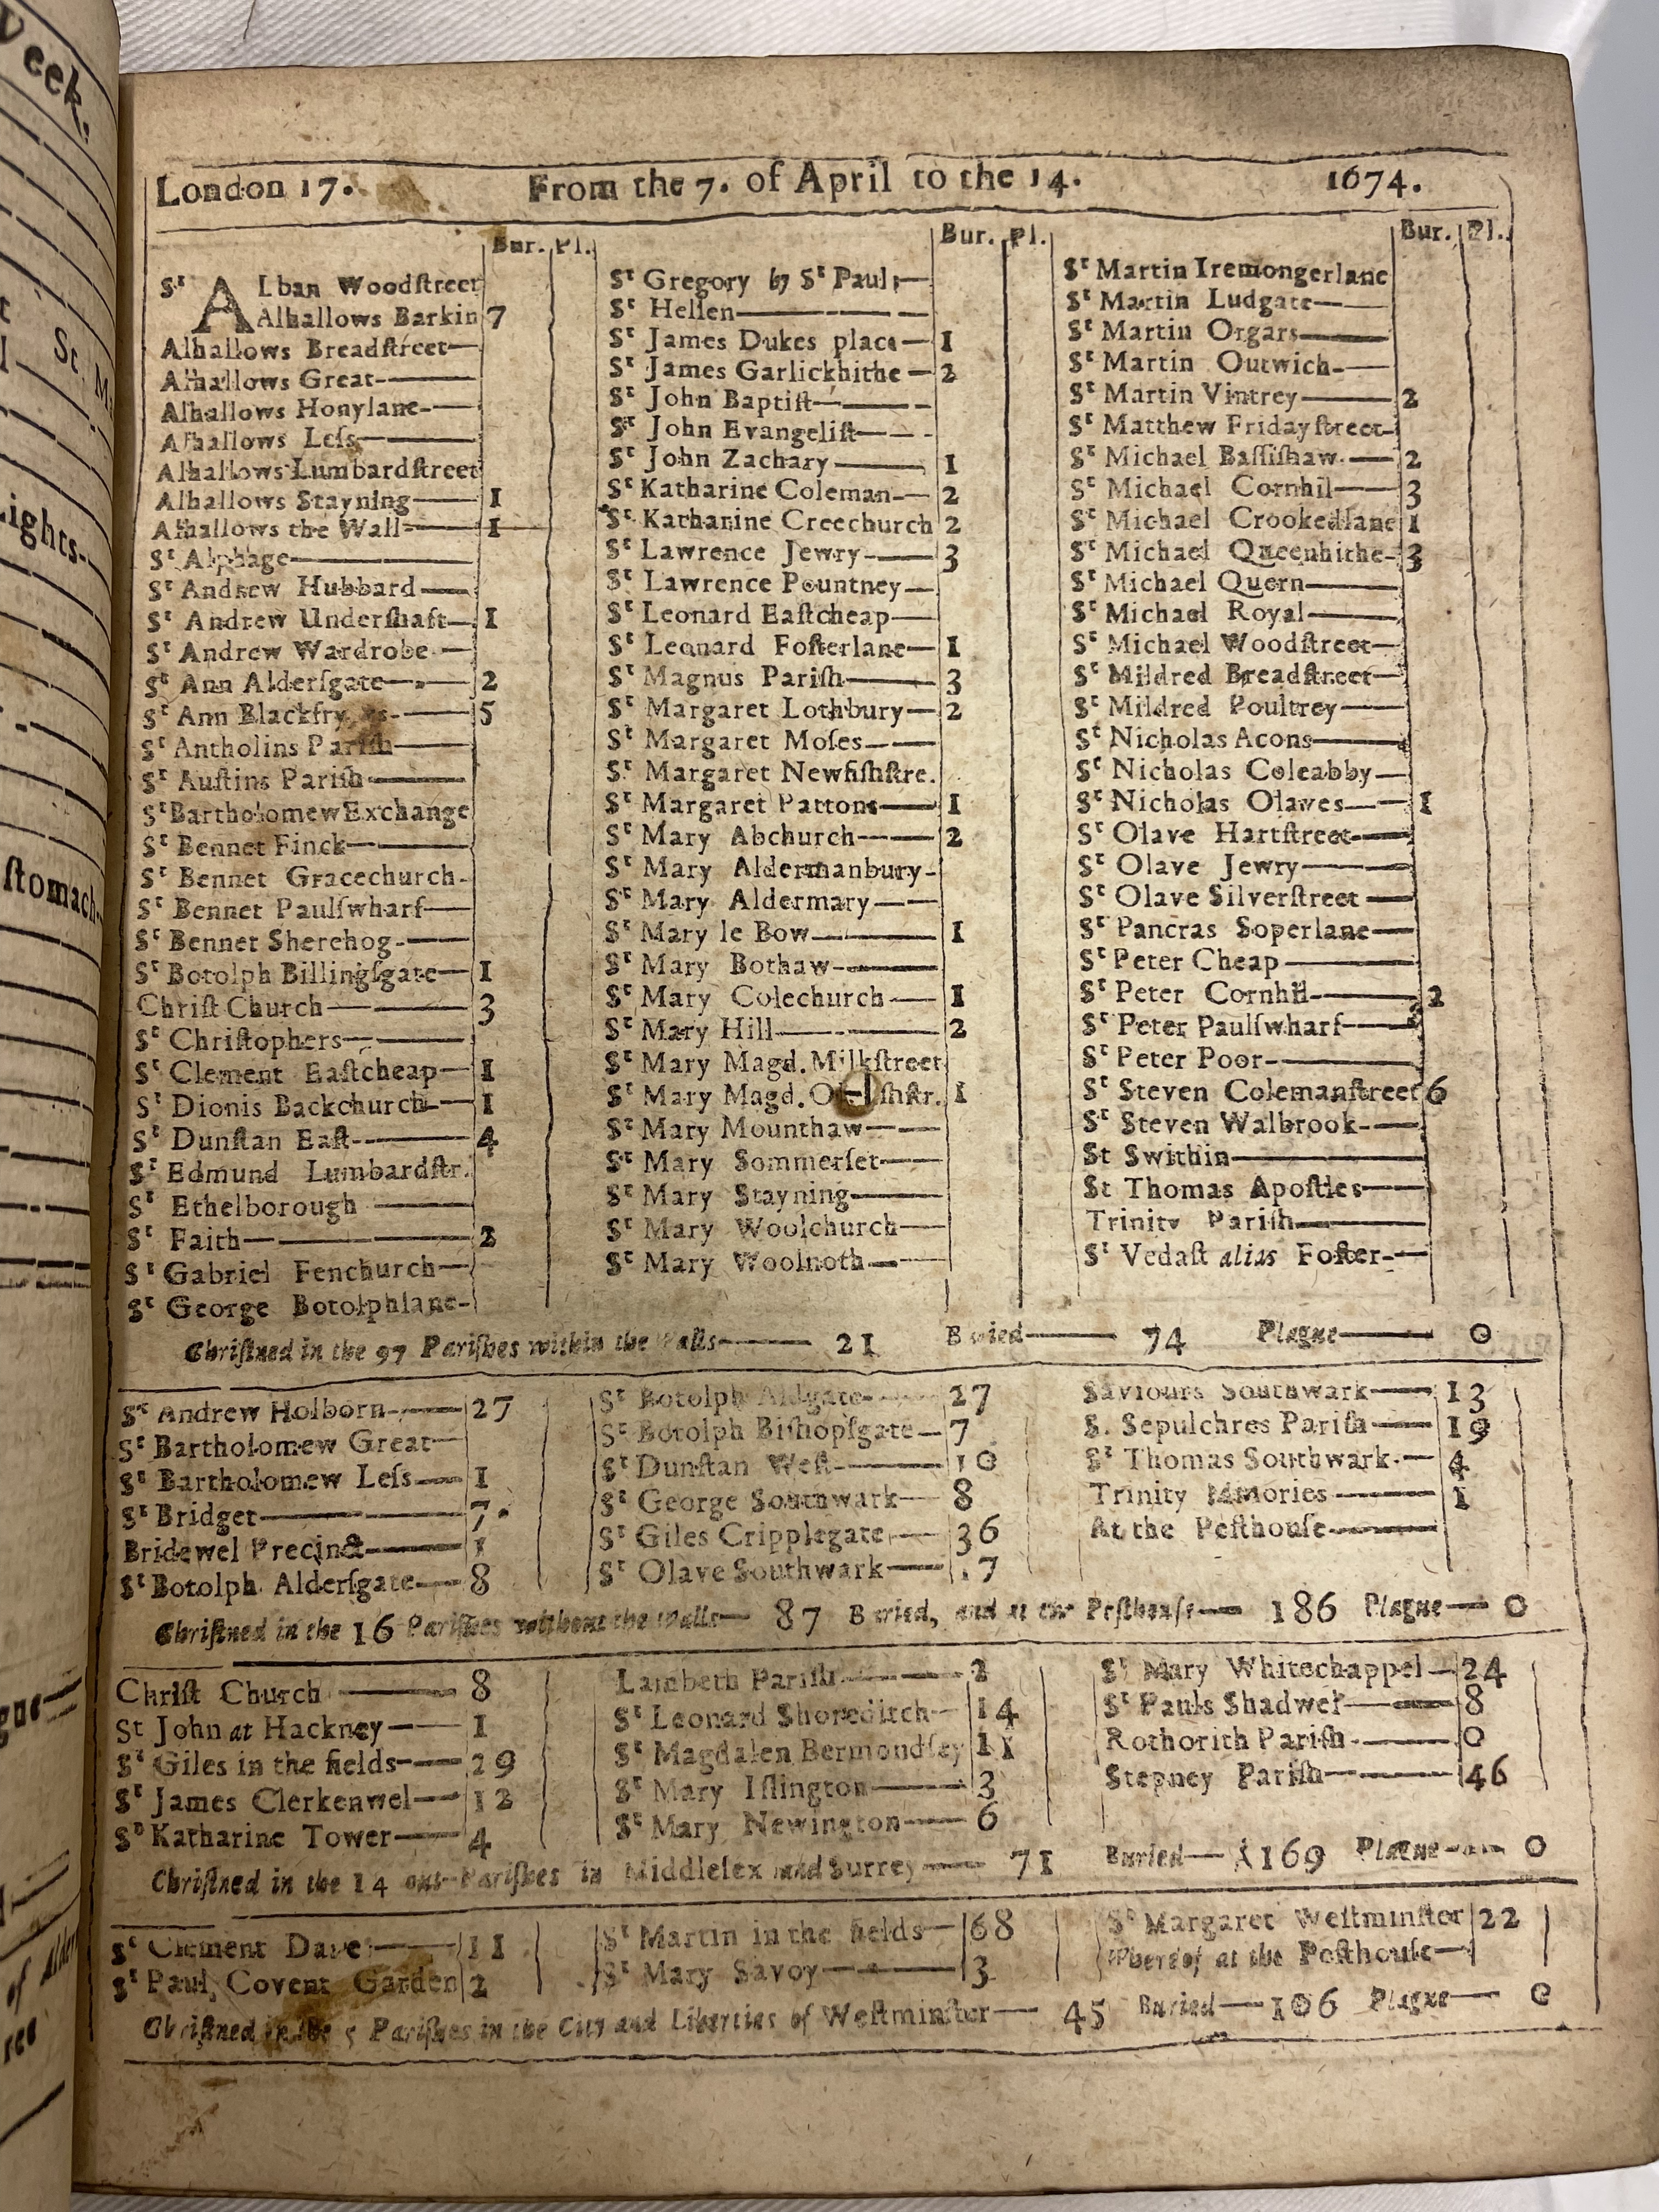 Veek.
St. M
ights-
ſtomach-
gue—
of Alder
London 17. From the 7. of April to the 14. 1674.
Bur. Pl.
Sᵗ ALban Woodſtreet
Alhallows Barkin 7
Alhallows Breadſtreet—
Alhallows Great-——
Alhallows Honylane-——
Alhallows Leſs———
Alhallows Lumbardſtreet
Alhallows Stayning—— 1
Alhallows the Wall—— 1
Sᵗ Alphage————
Sᵗ Andrew Hubbard——
Sᵗ Andrew Underſhaft— 1
Sᵗ Andrew Wardrobe—
Sᵗ Ann Alderſgate—— 2
Sᵗ Ann Blackfryers-—— 5
Sᵗ Antholins Pariſh——
Sᵗ Auſtins Pariſh———
Sᵗ Bartholomew Exchange
Sᵗ Bennet Finck———
Sᵗ Bennet Gracechurch-
Sᵗ Bennet Paulſwharf—
Sᵗ Bennet Sherehog-——
Sᵗ Botolph Billingſgate— 1
Chriſt Church——— 3
Sᵗ Chriſtophers———
Sᵗ Clement Eaſtcheap— 1
Sᵗ Dionis Backchurch— 1
Sᵗ Dunſtan Eaſt-——— 4
Sᵗ Edmund Lumbardſtr.
Sᵗ Ethelborough ———
Sᵗ Faith————— 2
Sᵗ Gabriel Fenchurch—
Sᵗ George Botolphlane-
Bur. Pl.
Sᵗ Gregory by Sᵗ Pauls—
Sᵗ Hellen—————
Sᵗ James Dukes place— 1
Sᵗ James Garlickhithe— 2
Sᵗ John Baptiſt———
Sᵗ John Evangeliſt——
Sᵗ John Zachary——— 1
Sᵗ Katharine Coleman-— 2
Sᵗ Katharine Creechurch 2
Sᵗ Lawrence Jewry-—— 3
Sᵗ Lawrence Pountney—
Sᵗ Leonard Eaſtcheap—
Sᵗ Leonard Foſterlane— 1
Sᵗ Magnus Pariſh——— 3
Sᵗ Margaret Lothbury— 2
Sᵗ Margaret Moſes——
Sᵗ Margaret Newfiſhſtre.
Sᵗ Margaret Pattons—— 1
Sᵗ Mary Abchurch—— 2
Sᵗ Mary Aldermanbury-
Sᵗ Mary Aldermary——
Sᵗ Mary le Bow——— 1
Sᵗ Mary Bothaw-———
Sᵗ Mary Colechurch—— 1
Sᵗ Mary Hill———— 2
Sᵗ Mary Magd. Milkſtreet
Sᵗ Mary Magd. Oldfiſhſtr. 1
Sᵗ Mary Mounthaw——
Sᵗ Mary Sommerſet——
Sᵗ Mary Stayning———
Sᵗ Mary Woolchurch—
Sᵗ Mary Woolnoth——
Bur. Pl.
Sᵗ Martin Iremongerlane
Sᵗ Martin Ludgate——
Sᵗ Martin Orgars———
Sᵗ Martin Outwich-——
Sᵗ Martin Vintrey——— 2
Sᵗ Matthew Fridayſtreet-
Sᵗ Michael Baſſiſhaw-— 2
Sᵗ Michael Cornhil—— 3
Sᵗ Michael Crookedlane 1
Sᵗ Michael Queenhithe- 3
Sᵗ Michael Quern———
Sᵗ Michael Royal———
Sᵗ Michael Woodſtreet—
Sᵗ Mildred Breadſtreet—
Sᵗ Mildred Poultrey——
Sᵗ Nicholas Acons———
Sᵗ Nicholas Coleabby—
Sᵗ Nicholas Olaves—— 1
Sᵗ Olave Hartſtreet——
Sᵗ Olave Jewry———
Sᵗ Olave Silverſtreet——
Sᵗ Pancras Soperlane—
Sᵗ Peter Cheap————
Sᵗ Peter Cornhil-——— 2
Sᵗ Peter Paulſwharf——
Sᵗ Peter Poor-————
Sᵗ Steven Colemanſtreet 6
Sᵗ Steven Walbrook-—
St Swithin—————
St Thomas Apoſtles——
Trinity Pariſh————
Sᵗ Vedaſt alias Foſter-—
Chriſtned in the 97 Pariſhes within the Walls——— 21 Buried——— 74 Plague——— 0
Sᵗ Andrew Holborn-—— 27
Sᵗ Bartholomew Great—
Sᵗ Bartholomew Leſs— 1
Sᵗ Bridget————— 7
Bridewel Precinct——— 1
Sᵗ Botolph Alderſgate— 8
Sᵗ Botolph Aldgate-—— 27
Sᵗ Botolph Biſhopſgate— 7
Sᵗ Dunſtan Weſt-——— 10
Sᵗ George Southwark— 8
Sᵗ Giles Cripplegate-— 36
Sᵗ Olave Southwark—— 17
Saviours Southwark—— 13
S. Sepulchres Pariſh—— 19
Sᵗ Thomas Southwark-— 4
Trinity Minories——— 1
At the Peſthouſe———
Chriſtned in the 16 Pariſhes without the Walls— 87 Buried, and at the Peſthouſe— 186 Plague— 0
Chriſt Church ——— 8
St John at Hackney—— 1
Sᵗ Giles in the fields-— 29
Sᵗ James Clerkenwel— 12
Sᵗ Katharine Tower—— 4
Lambeth Pariſh.——— 2
Sᵗ Leonard Shoreditch— 14
Sᵗ Magdalen Bermondſey 11
Sᵗ Mary Iſlington——— 3
Sᵗ Mary Newington—— 6
Sᵗ Mary Whitechappel— 24
Sᵗ Pauls Shadwel——— 8
Rothorith Pariſh-——— 0
Stepney Pariſh———— 46
Chriſtned in the 14 out-Pariſhes in Middleſex and Surrey—— 71 Buried— 169 Plague—— 0
Sᵗ Clement Danes—— 11
Sᵗ Paul, Covent Garden 2
Sᵗ Martin in the fields— 68
Sᵗ Mary Savoy———— 3
Sᵗ Margaret Weſtminſter 22
Whereof at the Peſthouſe—
Chriſtned in the 5 Pariſhes in the City and Liberties of Weſtminſter— 45 Buried— 106 Plague— 0